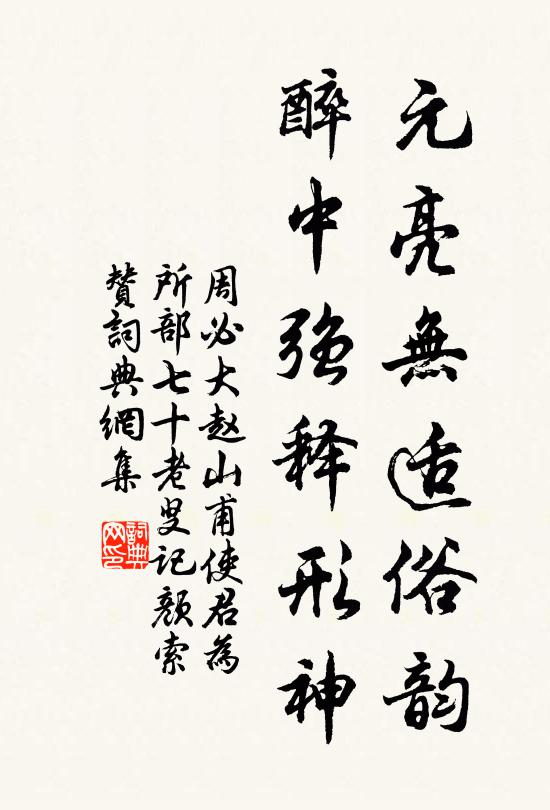 元亮無适俗韵
醉中強释形神
周必大赵山甫使君為
所部七十老叟記顏索
贊詞典網集
詞典网印